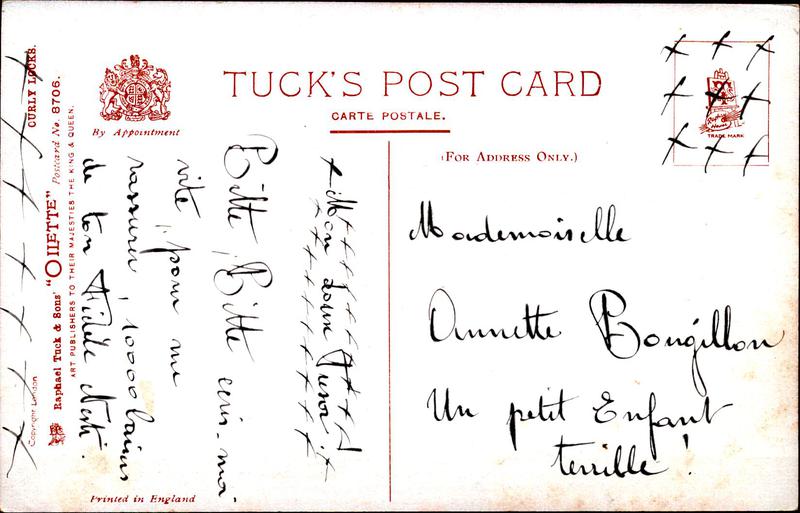 TUCK'S POST CARD
CARTE POSTALE.
By Appointment
(FOR ADDRESS ONLY.)
TRADE MARK
Mademoiselle
Annette Bougillon
Un petit Enfant
terrible!
Mon
Bitte, Bitte écris-moi
vite, pour me
rassurer, 10000 baisers
de ton
CURLY LOCKS.
Raphael Tuck & Sons' "OILETTE" Postcard No. 8706.
ART PUBLISHERS TO THEIR MAJESTIES THE KING & QUEEN.
Copyright London
Printed in England